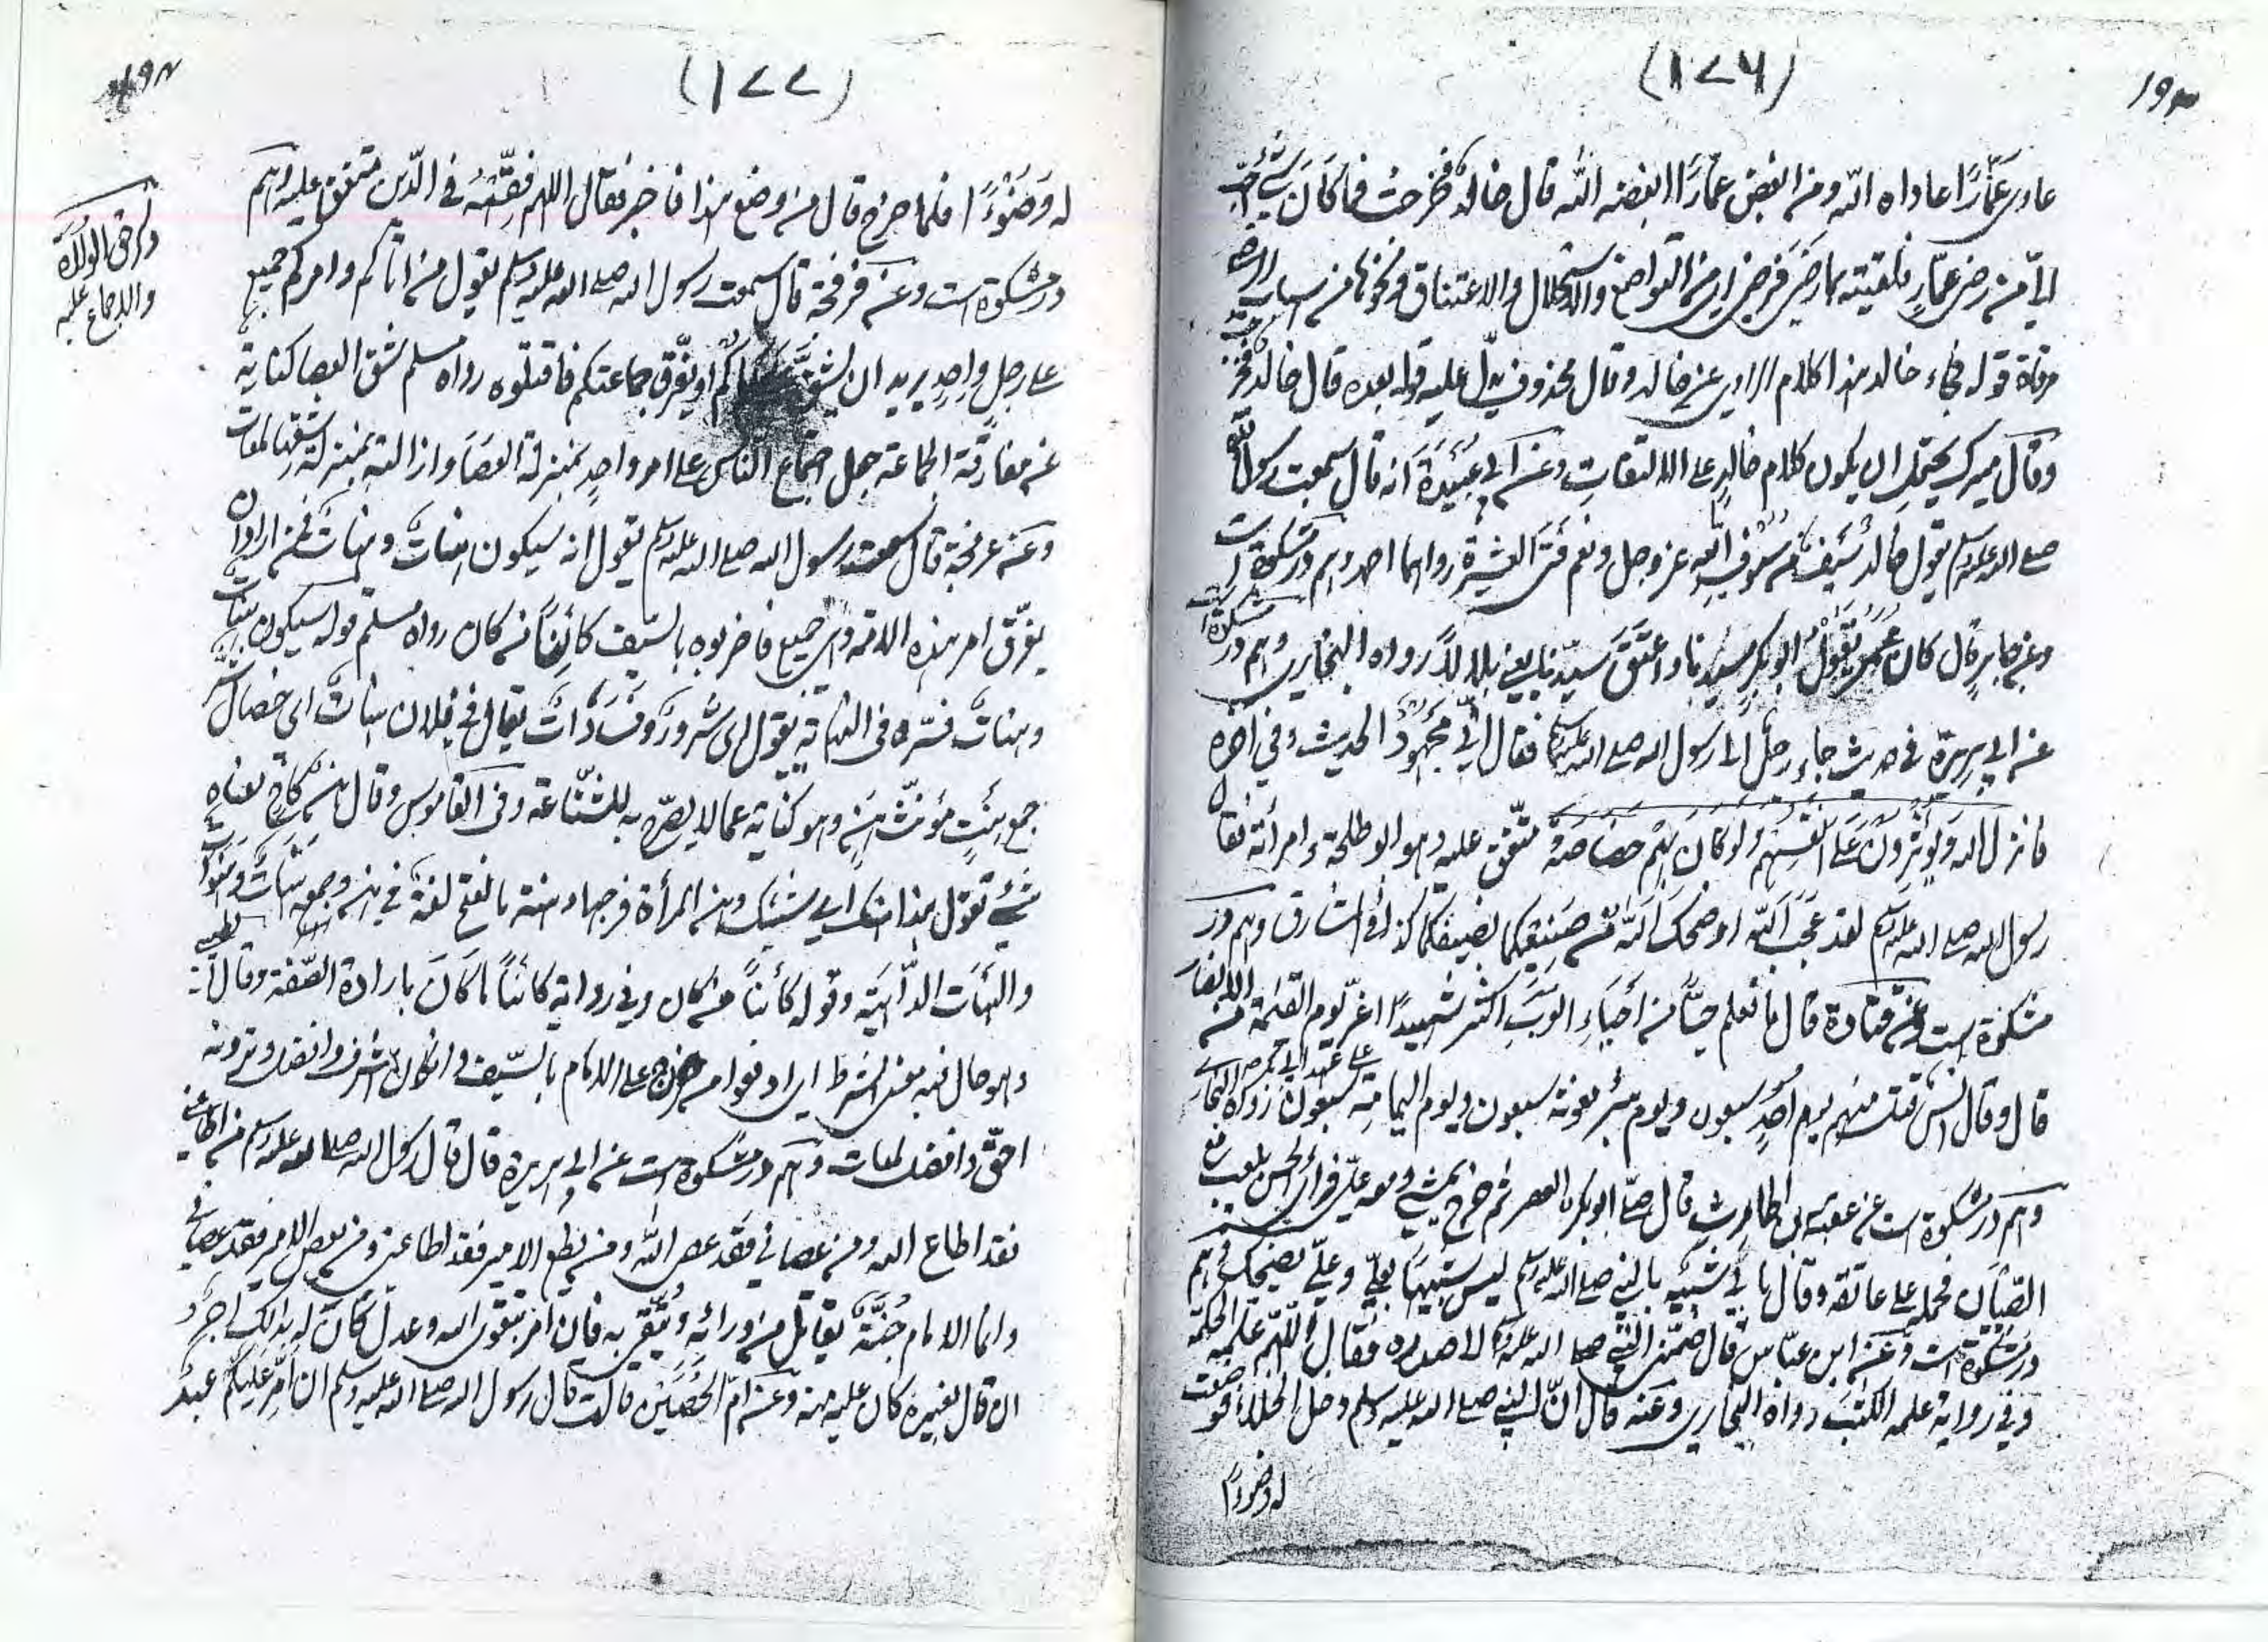 (۱۷۶)
۱۹۳
عادى عَمَّارًا عاداه اللّه ومن ابغض عمّارًا ابغضه اللّه قال خالد فخرجت فما كَانَ شَيْءٌ أحَبَّ
اليّ من رضى عمّارٍ فلقيته بما رضى فرضى اى من التواضع والاستحلال والاعتناق ونحوها من اسباب
مرقاة قوله فجاء خالد هذا كلام الراوى عن خالد وقال محذوف يدلّ عليه قوله بعده قال خالد فخرجت
وقال ميرك يحتمل ان يكون كلام خالدٍ على الالتفات وعن ابى عُبَيْدَةَ انه قال سمعت رسول اللّه
صلے اللہ علیہ وسلم يقول خالد سَيْفٌ من سُيُوفِ اللّه عز وجل ونعم فتى العشيرة رواهما احمد وهم در مشکوة است
وعن جابرٍ قال كان عُمَرُ يَقُوْلُ ابوبكر سيّدنا واعتق سيّدنا يعنى بلالاً رواه البخارى وهم در مشکوة است
عن ابى هريرة فى حديث جاء رجل الى رسول الله صلے اللہ علیہ وسلم فقال انّى مجهود الحديث وفى آخره
فانزل الله ويُؤْثِرُونَ عَلَى انفُسِهِم ولو كَانَ بِهِمْ خصاصةٌ متّفق عليه وهو ابو طلحة وامرأته فقال
رسول الله صلے اللہ علیہ وسلم لقد عجب اللّه او ضحك اللّه من صنيعكما بضيفكما كذا فى المشارق وهم در
مشکوة است وعن قتادة قال ما نعلم حيًّا من أحياءِ العرب اكثر شهيدًا اغرّ يوم القيمة من الانصار
قال وقال انس قتل منهم يوم احدٍ سبعون ويوم بئر معونة سبعون ويوم اليمامة على عهد ابى بكر سبعون رواه البخارى
وهم در مشکوة است عن عقبة بن الحارث قال صلّى ابوبكر العصر ثم خرج يمشى ومعه علىّ فرأى الحسن يلعب مع
الصّبيان فحمله على عاتقه وقال بابى شبيه بالنبى صلے اللہ علیہ وسلم ليس شبيهًا بعلىّ وعلىّ يضحك وهم
در مشکوة است وعن ابن عبّاس قال ضمّنى النبى صلے اللہ علیہ وسلم الى صدره فقال اللّهمّ علّمه الحكمة
وفى رواية علمه الكتب رواه البخارى وعنه قال انّ النبى صلے اللہ علیہ وسلم دخل الخلاء فوضعت
له وضوءًا
(۱۷۷)
۱۹۴
له وَضُوْءًا فلما خرج قال من وضع هذا فاخبر فقال اللهم فَقِّهْهُ فى الدّين متفق عليه وهم
در مشکوة است وعن عرفجة قال سمعت رسول الله صلے اللہ علیہ وسلم يقول من اتاكم وامركم جميع
ذكر حق الولاة
والاجماع عليه
على رجلٍ واحدٍ يريد ان يشقّ عصاكم او يفرّق جماعتكم فاقتلوه رواه مسلم شق العصا كناية
عن مفارقة الجماعة جعل اجتماع الناس على امر واحدٍ بمنزلة العصا وازالته بمنزلة شقها لمعات
وعن عرفجة قال سمعت رسول الله صلے اللہ علیہ وسلم يقول انه سيكون هنات وهنات فمن اراد ان
يفرّق امر هذه الامّة وهى جميع فاضربوه بالسّيف كائنًا من كان رواه مسلم قوله سيكون هنات
وهنات فسّره فى النهاية بقوله اى شرور وفسادات يقال فى فلان هنات اى خصال شرّ
جمع هنت مؤنّث هنٍ وهو كناية عما لا يصرّح به للشّناعة وفى القاموس وقال هن كاخ معناه
شىء تقول هذا هنك اى شيئك وهن المرأة فرجها وهنة بالفتح لغة فى هن وجمعه هنات وهنوات
والهنات الدّاهية وقوله كائنًا من كان وفى رواية كائنًا ما كان بارادة الصّفة وقال الطيبى
وهو حال فيه معنى الشرط اى ادفعوا من خرج على الامام بالسّيف وان كان اشرف وافضل وترونه
احقّ وافضل لمعات وهم در مشکوة است عن ابى هريرة قال قال رسول الله صلے اللہ علیہ وسلم من اطاعنى
فقد اطاع الله ومن عصانى فقد عصى اللّه ومن يطع الامير فقد اطاعنى ومن يعص الامير فقد عصانى
وانما الامام جُنَّةٌ يقاتل من ورائه ويُتَّقى به فان امر بتقوى الله وعدل كَانَ له بذلك اجرًا و
ان قال بغيره كان عليه منه وعن امّ الحُصَيْن قالت قال رسول الله صلے اللہ علیہ وسلم ان اُمِّرَ عليكم عبدٌ